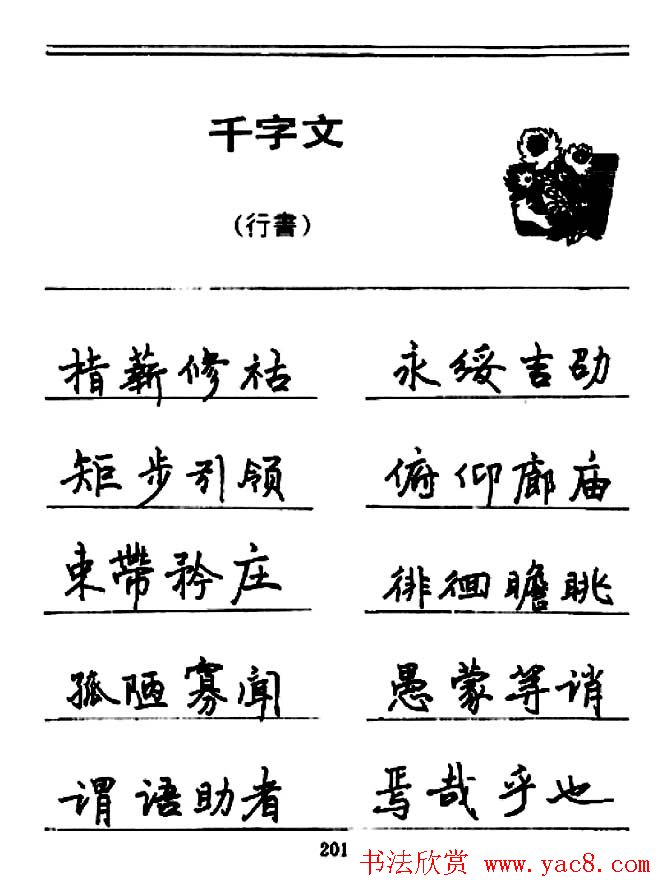 千字文
(行書)
指薪修祜 永绥吉劭
矩步引领 俯仰廊庙
束帶矜庄 徘徊瞻眺
孤陋寡闻 愚蒙等诮
谓语助者 焉哉乎也
201
书法欣赏 www.yac8.com